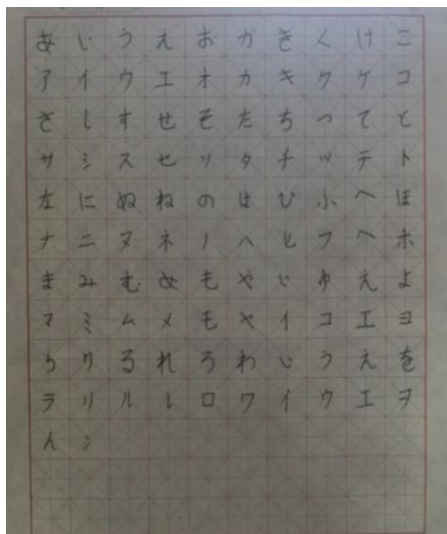 あいうえおかきくけこ
アイウエオカキクケコ
さしすせそたちつてと
サシスセソタチツテト
なにぬねのはひふへほ
ナニヌネノハヒフヘホ
まみむめもやいゆえよ
マミムメモヤイコエヨ
らりるれろわいうえを
ラリルレロワイウエヲ
んン